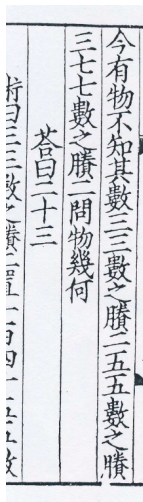 今有物不知其數三三數之賸二五五數之賸
三七七數之賸二問物幾何
荅曰二十三
術曰三三數之賸二置一百四十五五數